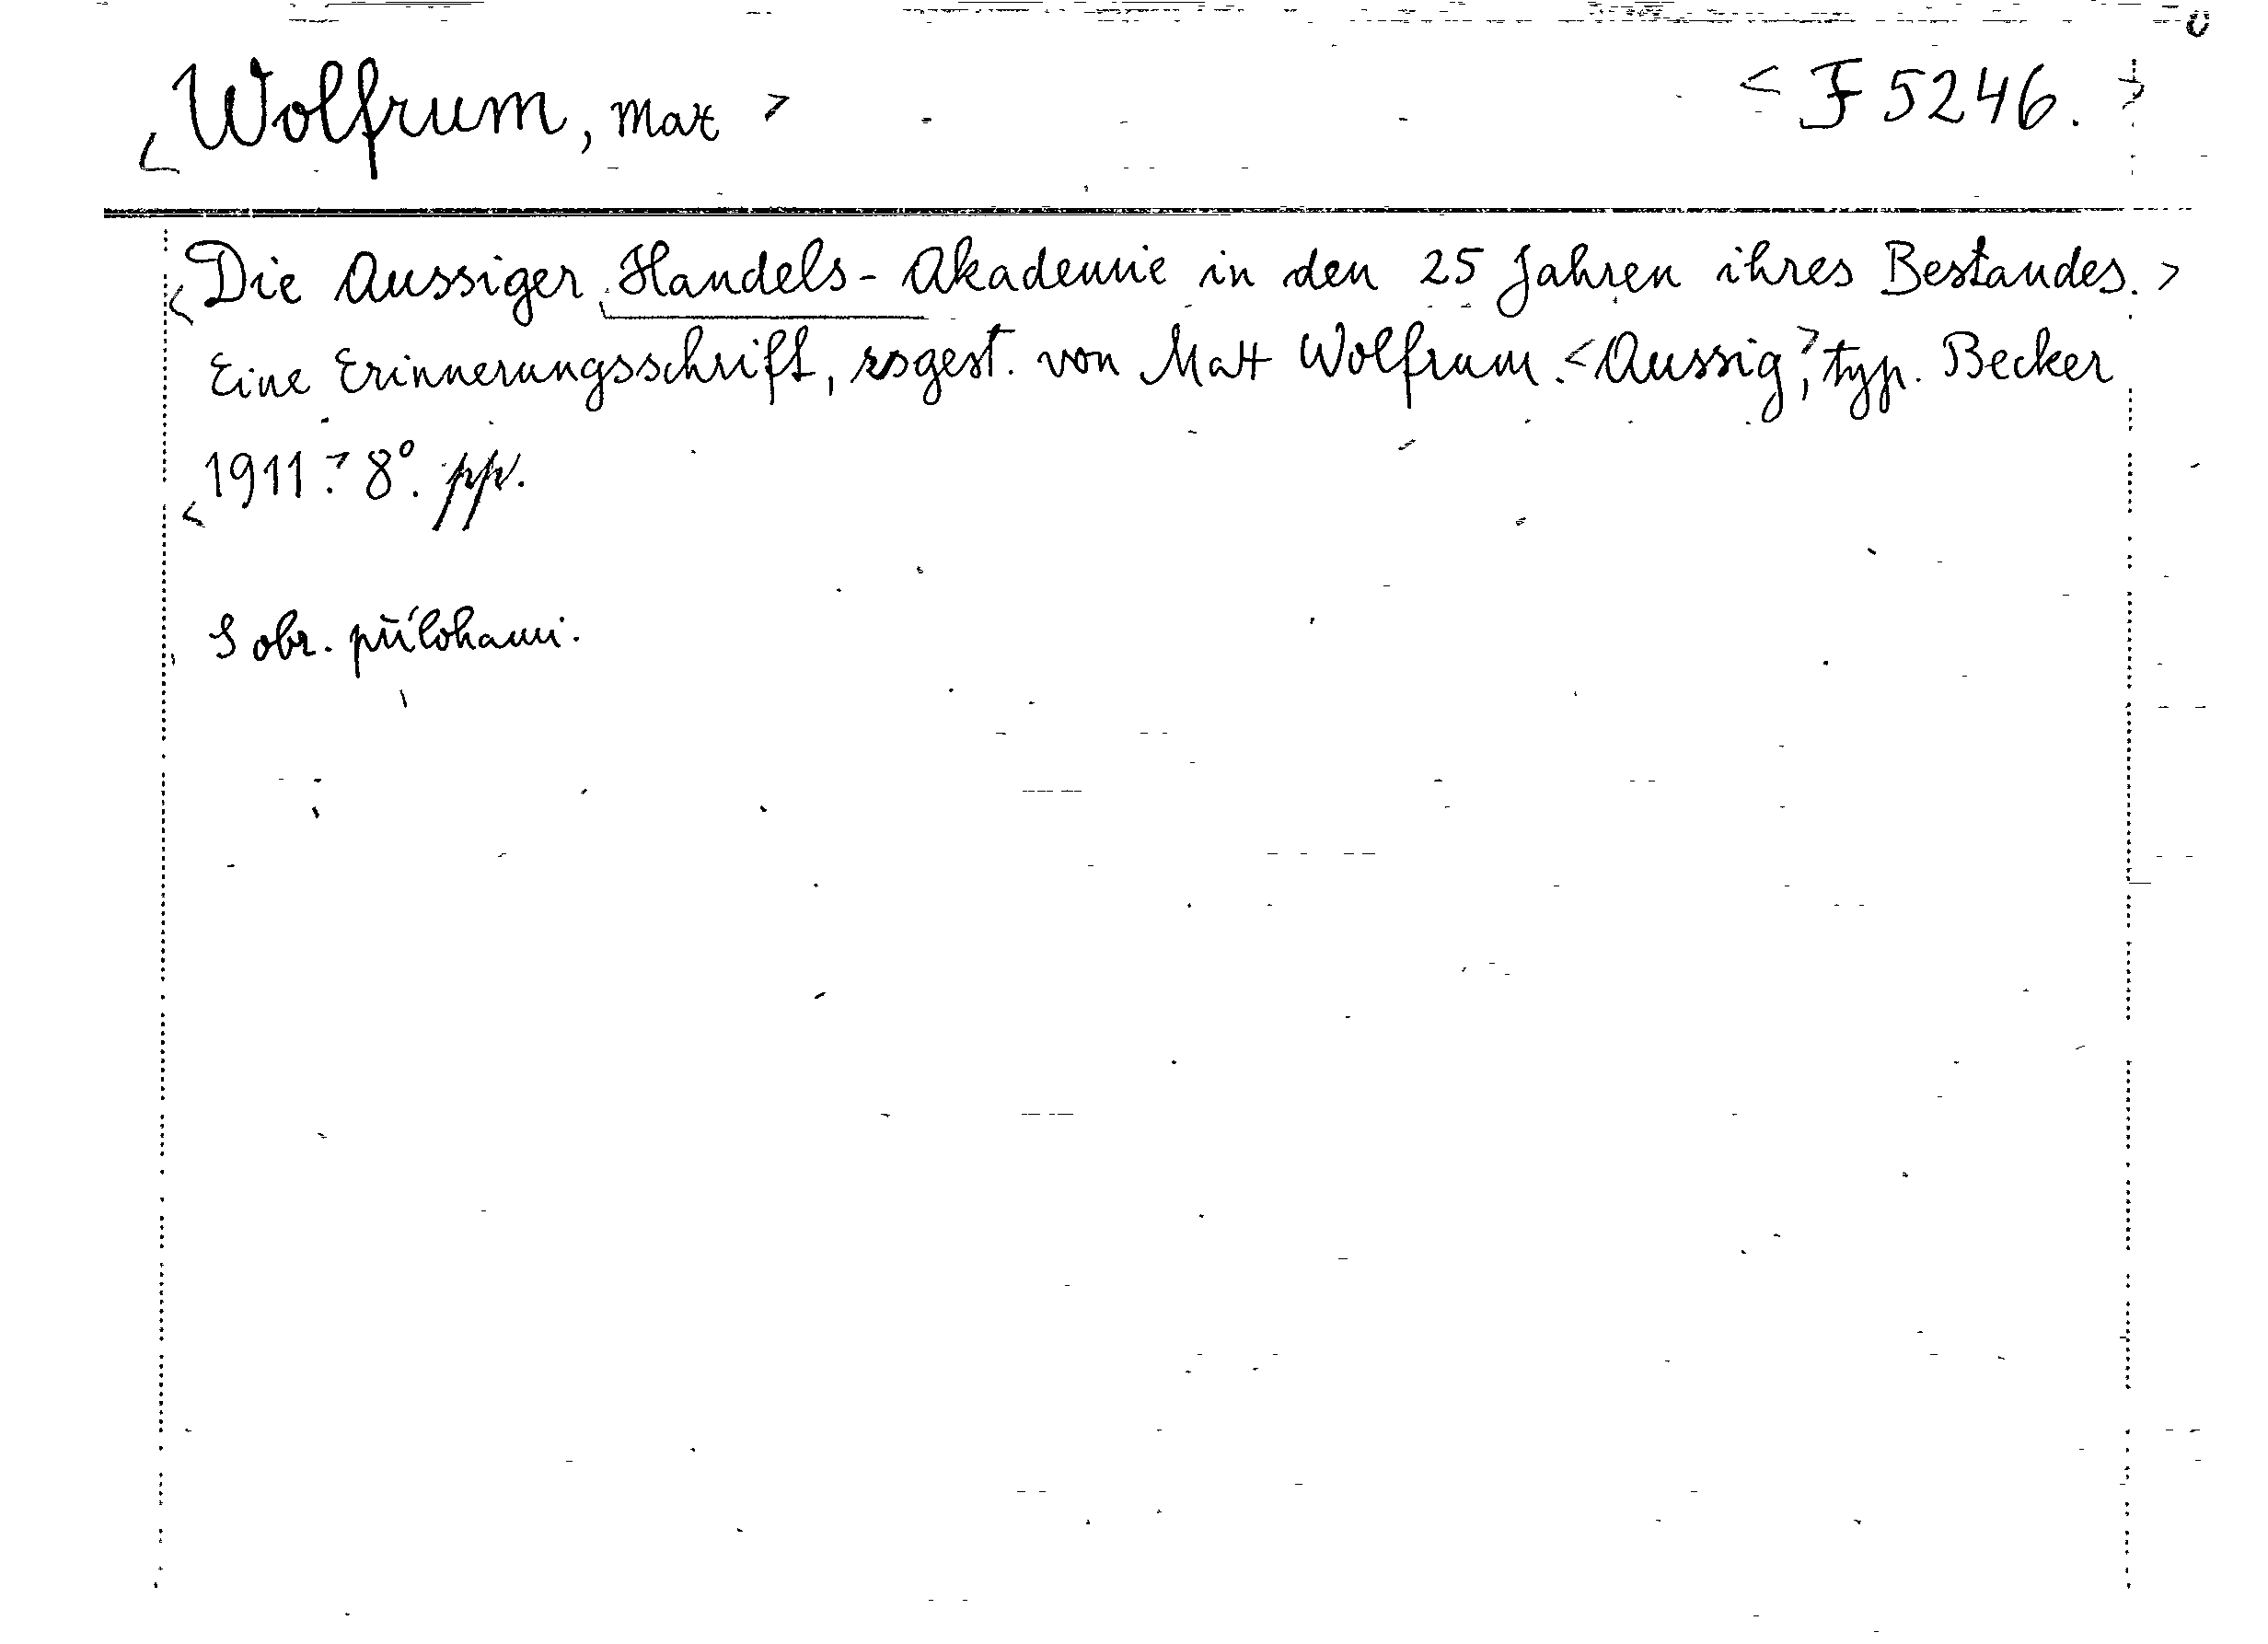 <Wolfrum, Max> <F 5246.>
<Die Aussiger Handels-Akademie in den 25 Jahren ihres Bestandes.>
Eine Erinnerungsschrift, zsgest. von Max Wolfrum. <Aussig>, typ. Becker
<1911.> 8°. pp.
S obr. přílohami.